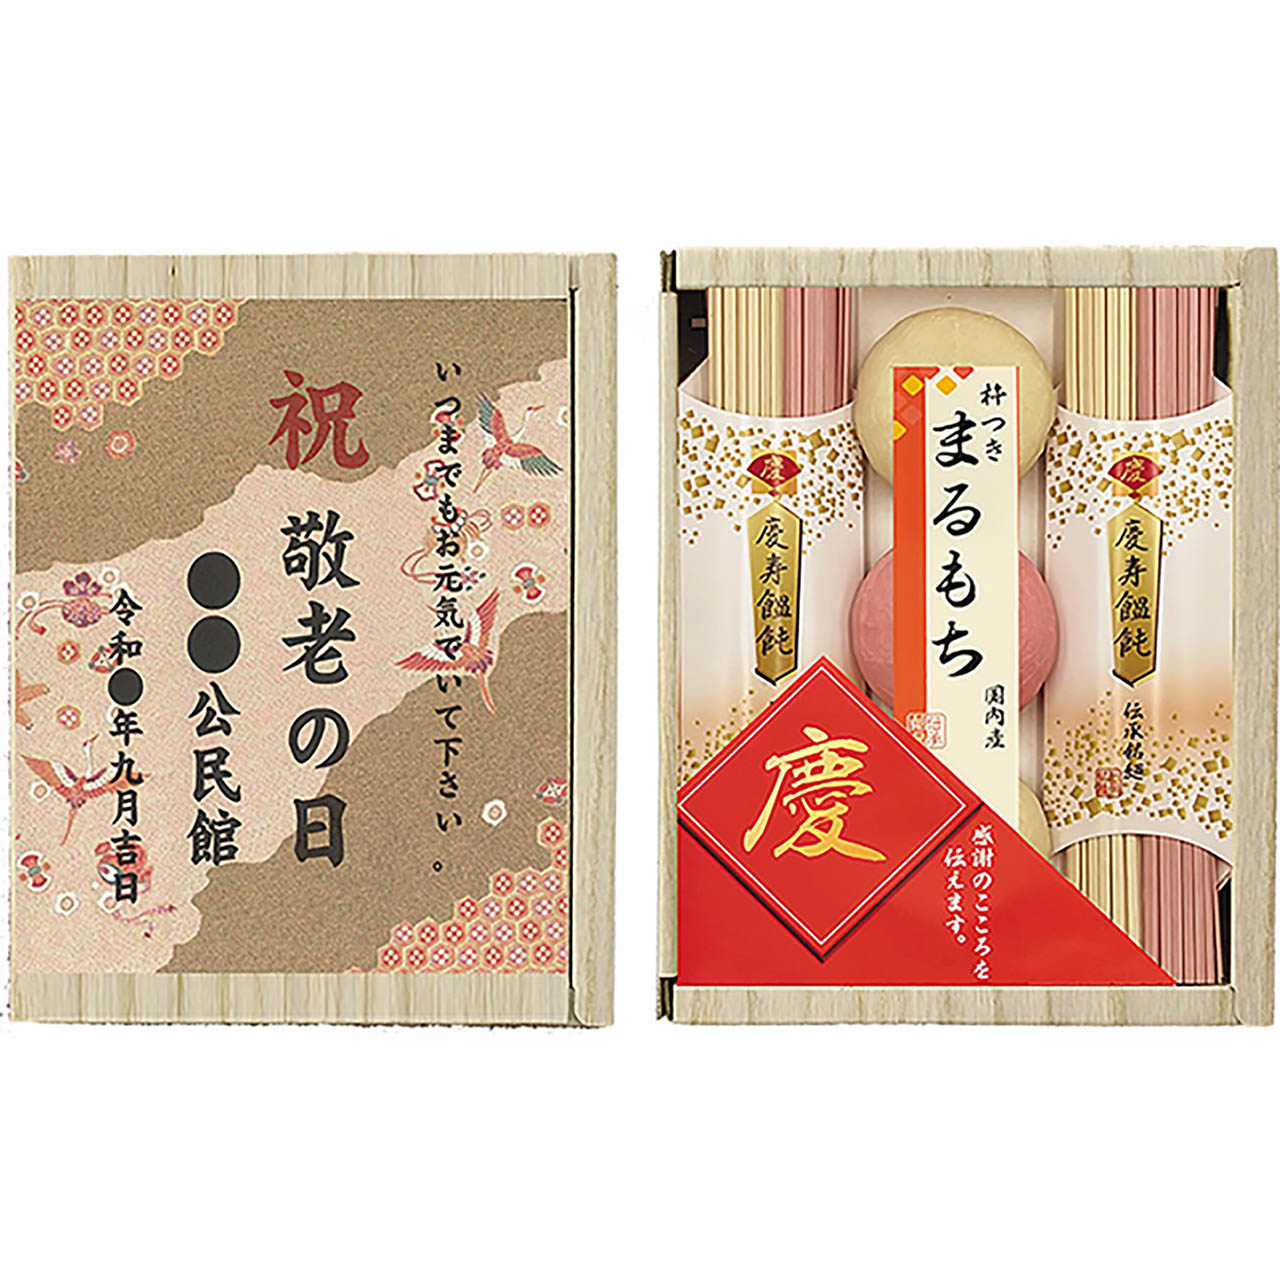 いつまでもお元気でいて下さい。
祝
敬老の日
●●公民館
令和●年九月吉日
慶
慶寿饂飩
杵つき
まるもち
国内産
慶
慶寿饂飩
伝承銘麺
慶
感謝のこころを
伝えます。